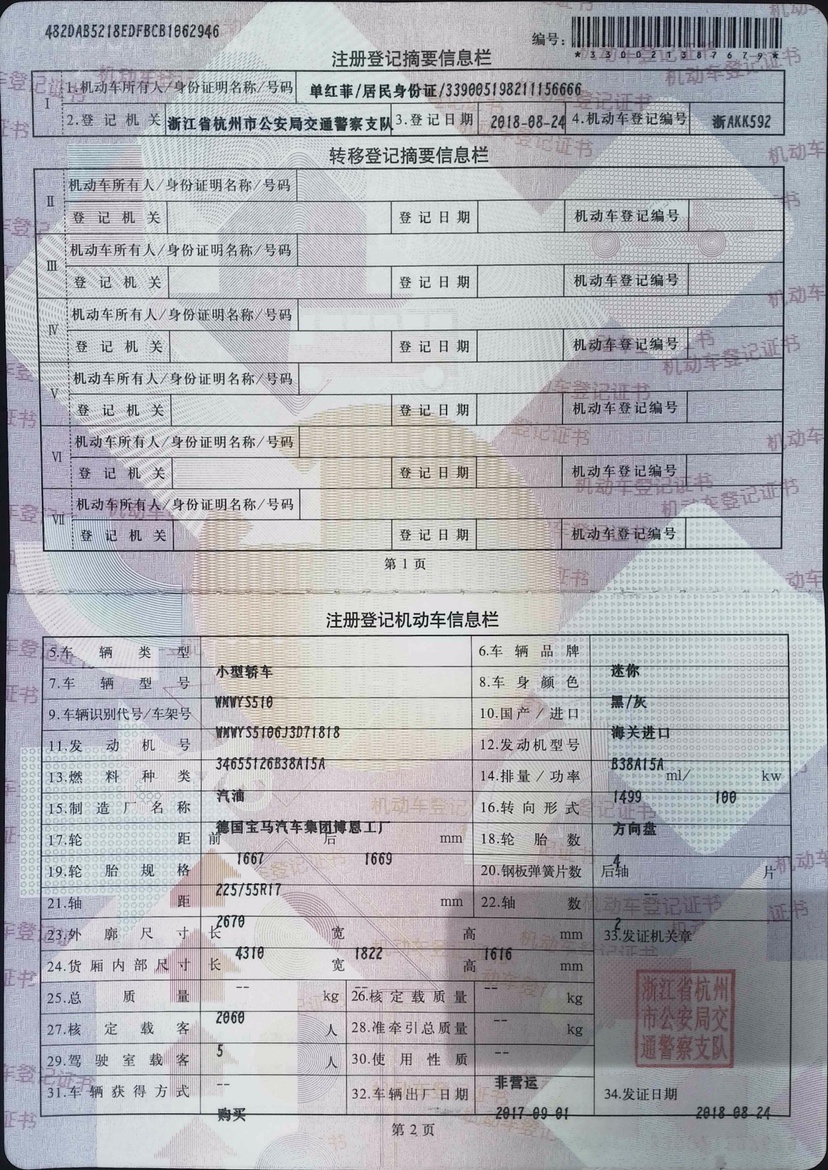 482DAB5218EDFBCB1062946
编号:
*330021387679*
注册登记摘要信息栏
I 1.机动车所有人/身份证明名称/号码 单红菲/居民身份证/339005198211156666
2.登记机关 浙江省杭州市公安局交通警察支队 3.登记日期 2018-08-24 4.机动车登记编号 浙AKK592
转移登记摘要信息栏
II 机动车所有人/身份证明名称/号码
登记机关 登记日期 机动车登记编号
III 机动车所有人/身份证明名称/号码
登记机关 登记日期 机动车登记编号
IV 机动车所有人/身份证明名称/号码
登记机关 登记日期 机动车登记编号
V 机动车所有人/身份证明名称/号码
登记机关 登记日期 机动车登记编号
VI 机动车所有人/身份证明名称/号码
登记机关 登记日期 机动车登记编号
VII 机动车所有人/身份证明名称/号码
登记机关 登记日期 机动车登记编号
第1页
注册登记机动车信息栏
5.车辆类型 小型轿车 6.车辆品牌 迷你
7.车辆型号 WMWYS510 8.车身颜色 黑/灰
9.车辆识别代号/车架号 WMWYS5106J3D71818 10.国产/进口 海关进口
11.发动机号 34655126B38A15A 12.发动机型号 B38A15A
13.燃料种类 汽油 14.排量/功率 1499 ml/ 100 kw
15.制造厂名称 德国宝马汽车集团博恩工厂 16.转向形式 方向盘
17.轮距 前 1667 后 1669 mm 18.轮胎数 4
19.轮胎规格 225/55R17 20.钢板弹簧片数 后轴 -- 片
21.轴距 2670 mm 22.轴数 2
23.外廓尺寸 长 4310 宽 1822 高 1616 mm 33.发证机关章
24.货厢内部尺寸 长 -- 宽 -- 高 -- mm
25.总质量 2060 kg 26.核定载质量 -- kg
27.核定载客 5 人 28.准牵引总质量 -- kg
浙江省杭州
市公安局交
通警察支队
29.驾驶室载客 -- 人 30.使用性质 非营运
31.车辆获得方式 购买 32.车辆出厂日期 2017-09-01 34.发证日期 2018-08-24
第2页